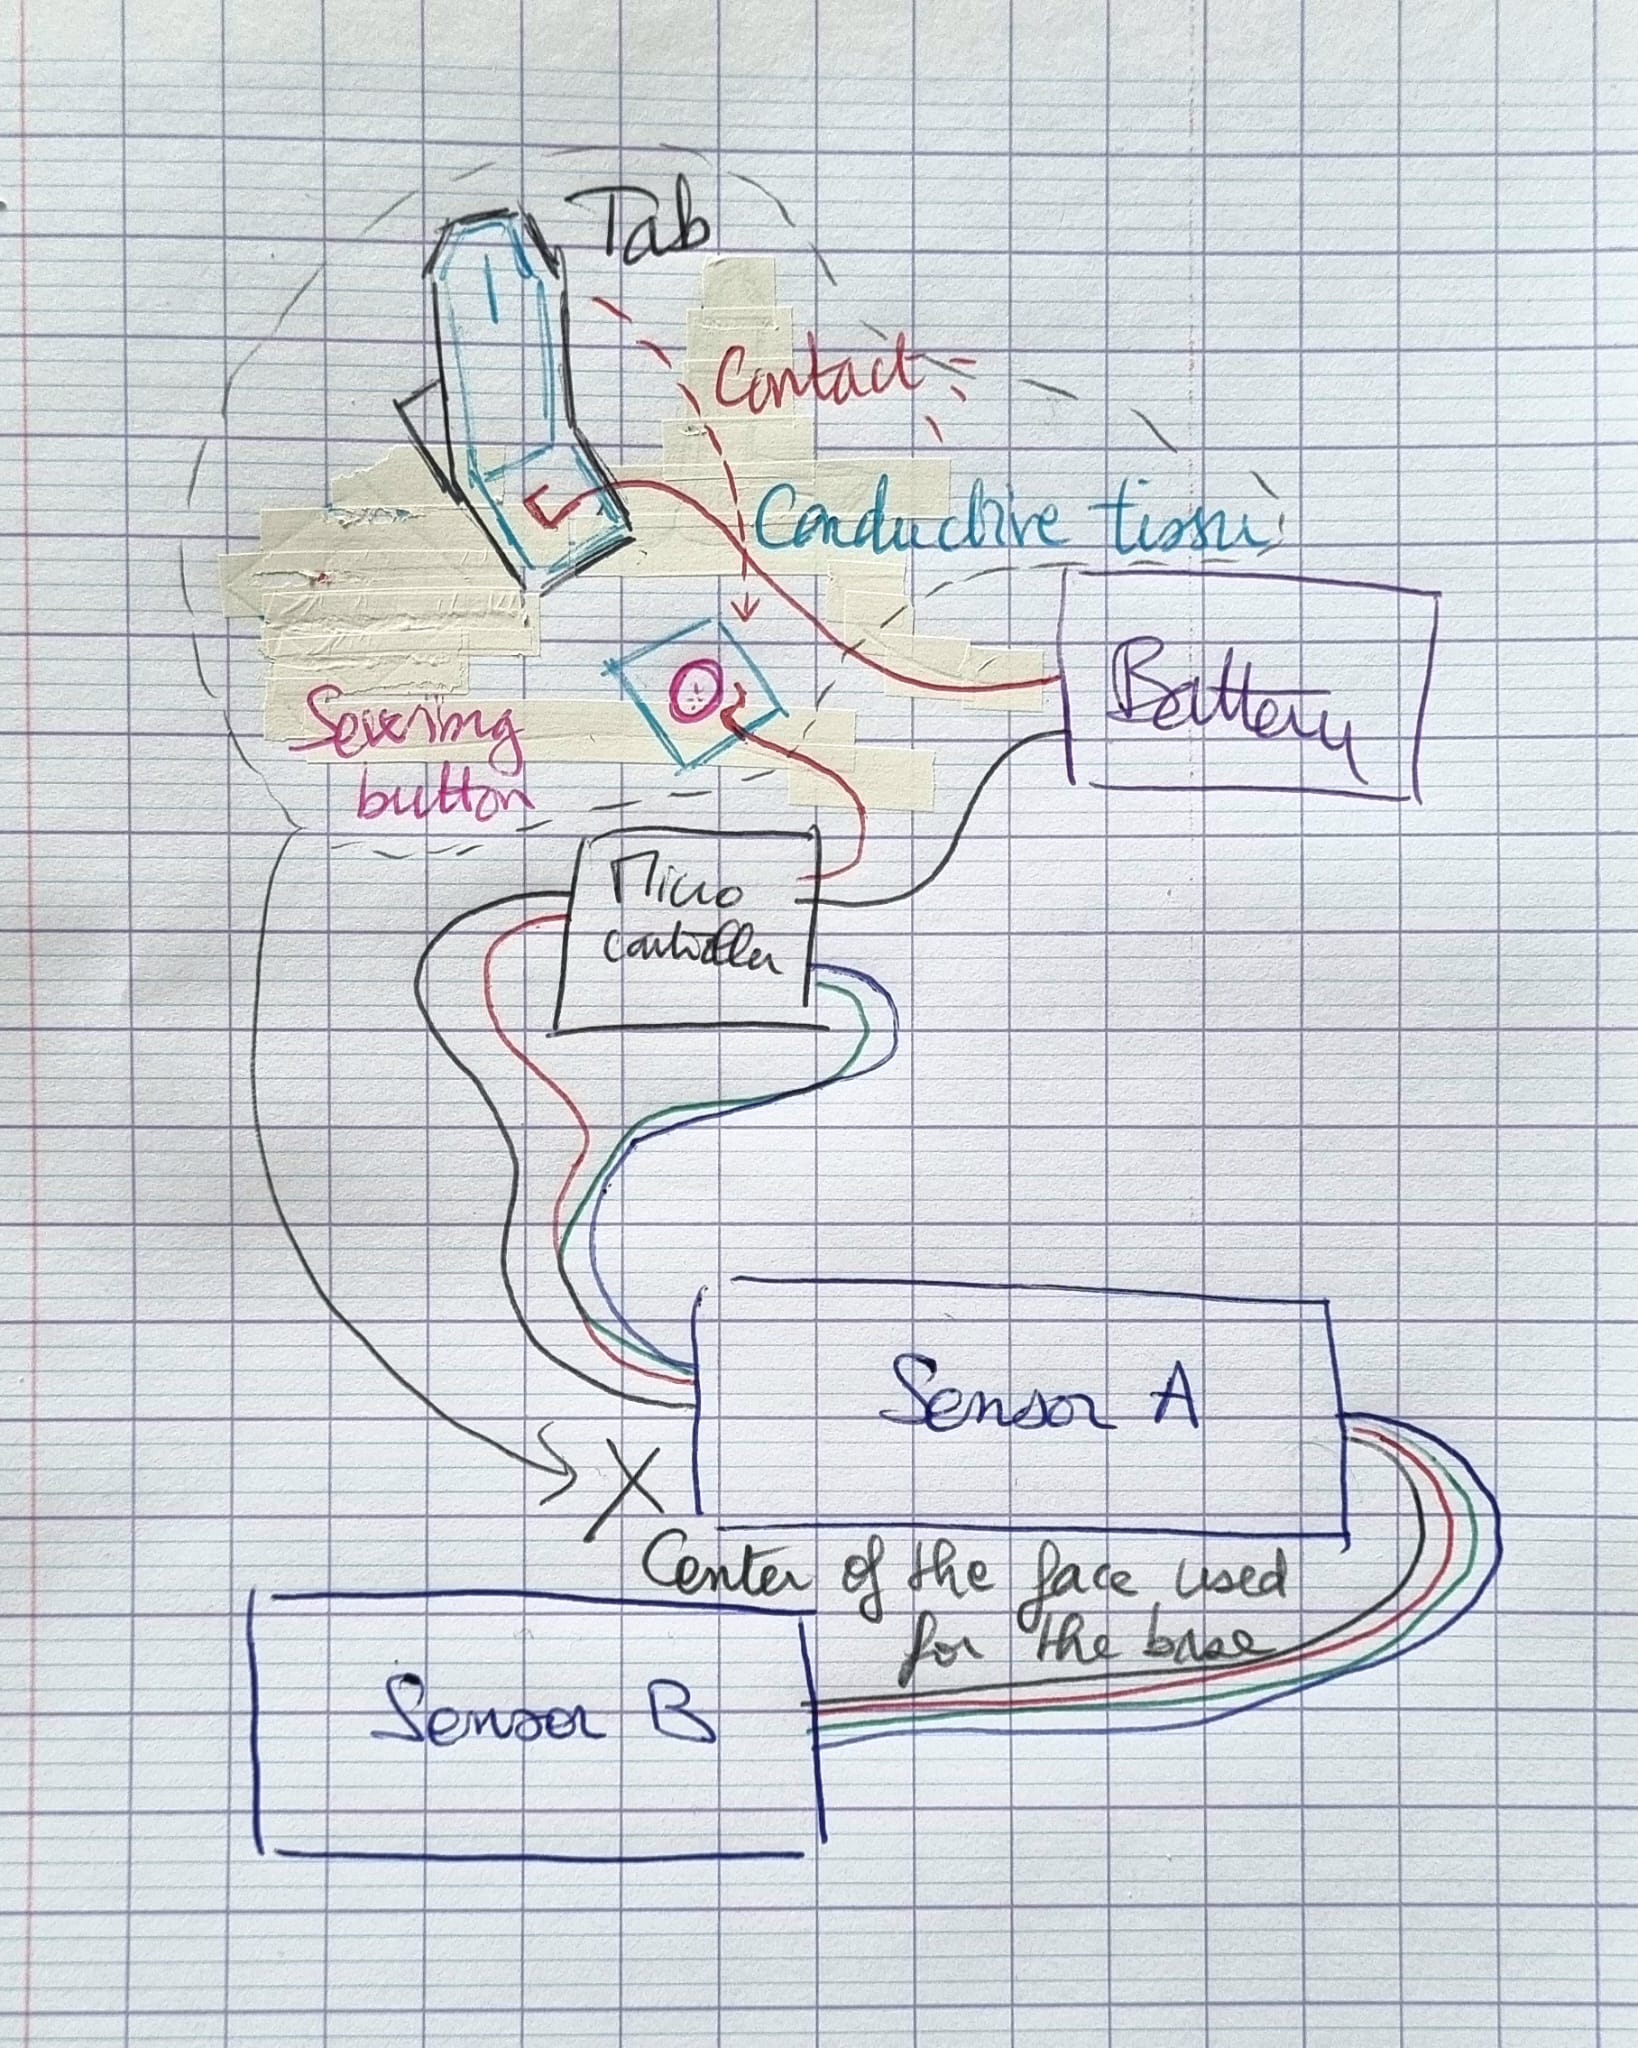 Tab
Contact
Conductive tissu
Battery
Sewing
button
Micro
controller
Sensor A
X
Center of the face used
for the base
Sensor B